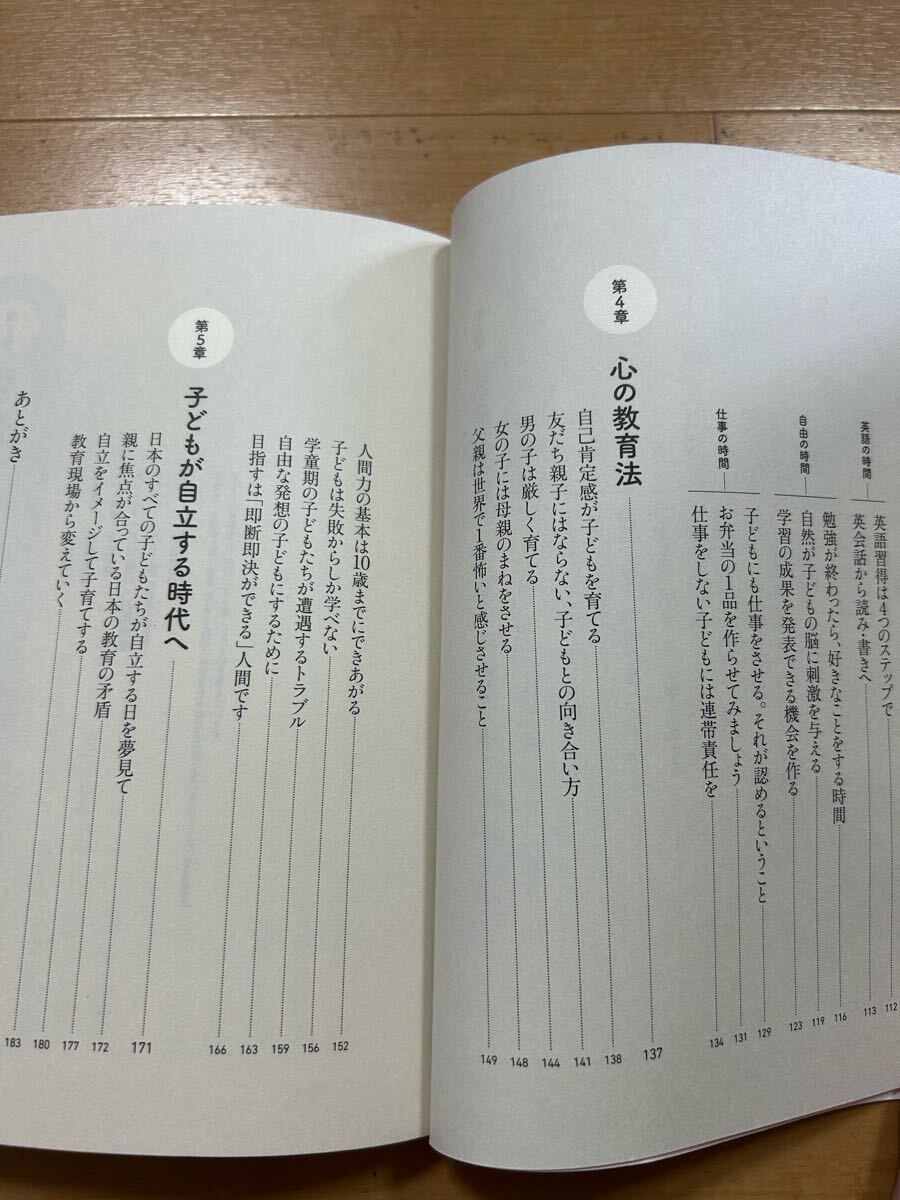 英語の時間
英語習得は4つのステップで 112
英会話から読み・書きへ 113
自由の時間
勉強が終わったら、好きなことをする時間 116
自然が子どもの脳に刺激を与える 119
学習の成果を発表できる機会を作る 123
仕事の時間
子どもにも仕事をさせる。それが認めるということ 129
お弁当の1品を作らせてみましょう 131
仕事をしない子どもには連帯責任を 134
第4章
心の教育法 137
自己肯定感が子どもを育てる 138
友だち親子にはならない、子どもとの向き合い方 141
男の子は厳しく育てる 144
女の子には母親のまねをさせる 148
父親は世界で1番怖いと感じさせること 149
人間力の基本は10歳までにできあがる 152
子どもは失敗からしか学べない 156
学童期の子どもたちが遭遇するトラブル 159
自由な発想の子どもにするために 163
目指すは「即断即決ができる」人間です 166
第5章
子どもが自立する時代へ 171
日本のすべての子どもたちが自立する日を夢見て
親に焦点が合っている日本の教育の矛盾 172
自立をイメージして子育てする 177
教育現場から変えていく 180
あとがき 183